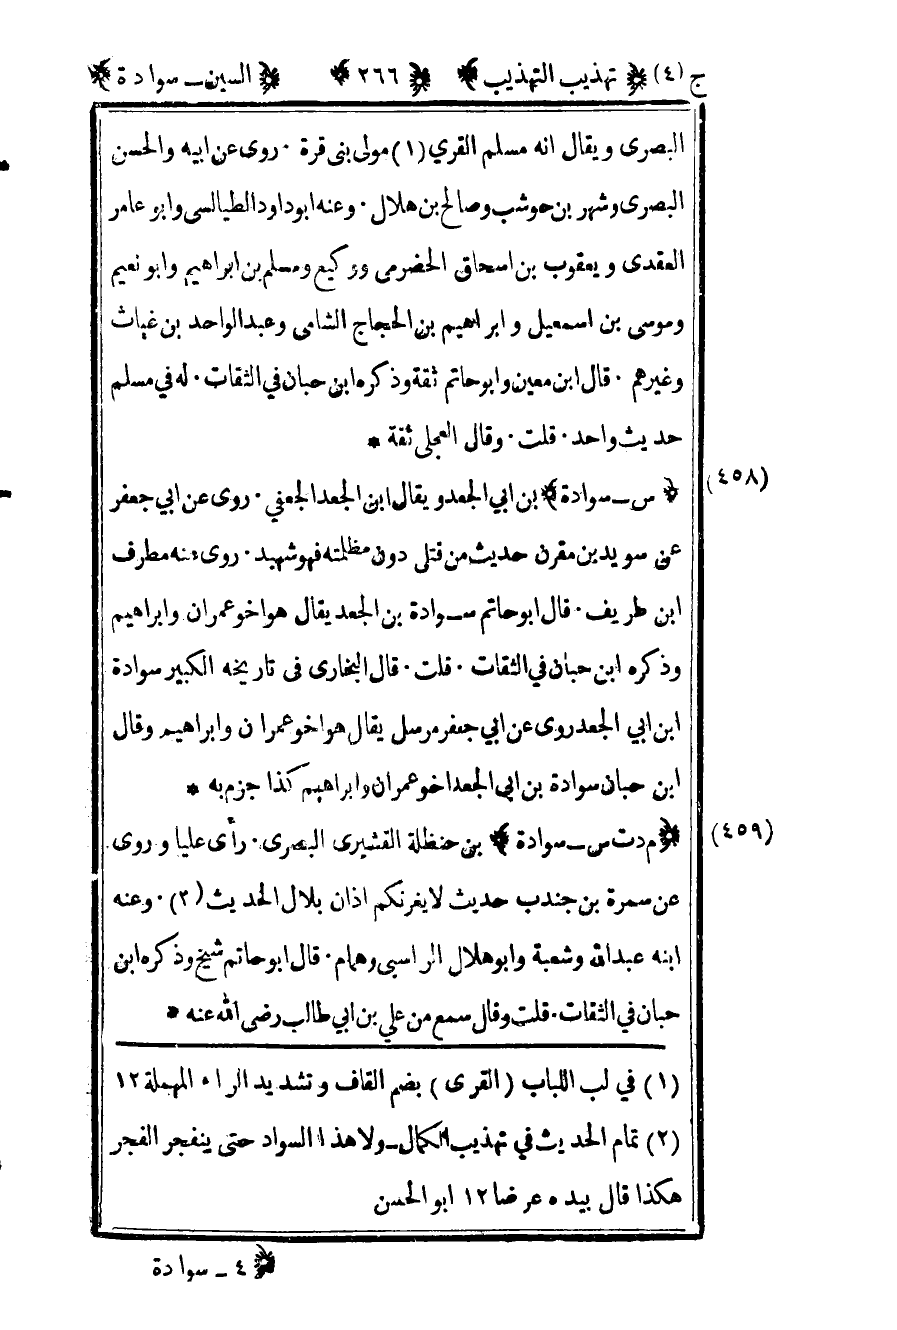 ج (٤) ﴿ تهذيب التهذيب ﴾ ﴿ ٢٦٦ ﴾ ﴿ السين ـ سوادة ﴾
البصرى ويقال انه مسلم القري (١) مولى بنى قرة ٠ روى عن ابيه والحسن
البصرى وشهر بن حوشب وصالح بن هلال ٠ وعنه ابوداود الطيالسى وابو عامر
العقدى ويعقوب بن اسحاق الحضرمى ووكيع ومسلم بن ابراهيم وابو نعيم
وموسى بن اسمعيل وابراهيم بن الحجاج الشامى وعبدالواحد بن غياث
وغيرهم ٠ قال ابن معين وابوحاتم ثقة وذكره ابن حبان في الثقات ٠ له في مسلم
حديث واحد ٠ قلت ٠ وقال العجلى ثقة *
﴿ س ـ سوادة ﴾ بن ابي الجعد ويقال ابن الجعد الجعفي ٠ روى عن ابي جعفر (٤٥٨)
عن سويد بن مقرن حديث من قتل دون مظلمته فهو شهيد ٠ روى عنه مطرف
ابن طريف ٠ قال ابوحاتم سوادة بن الجعد يقال هو اخو عمران وابراهيم
وذكره ابن حبان في الثقات ٠ قلت ٠ قال البخارى فى تاريخه الكبير سوادة
ابن ابي الجعد روى عن ابي جعفر مرسل يقال هو اخو عمران وابراهيم وقال
ابن حبان سوادة بن ابى الجعد اخو عمران وابراهيم كذا جزم به *
﴿ م د ت س ـ سوادة ﴾ بن حنظلة القشيرى البصرى ٠ رأى عليا وروى (٤٥٩)
عن سمرة بن جندب حديث لا يغرنكم اذان بلال الحديث (٢) ٠ وعنه
ابنه عبدالله وشعبة وابوهلال الراسبى وهمام ٠ قال ابوحاتم شيخ وذكره ابن
حبان في الثقات ٠ قلت وقال سمع من علي بن ابي طالب رضى الله عنه *
(١) في لب اللباب (القرى) بضم القاف وتشديد الراء المهملة ١٢
(٢) تمام الحديث في تهذيب الكمال ـ ولا هذا السواد حتى ينفجر الفجر
هكذا قال بيده عرضا ١٢ ابو الحسن
﴿ ٤ ـ سوادة